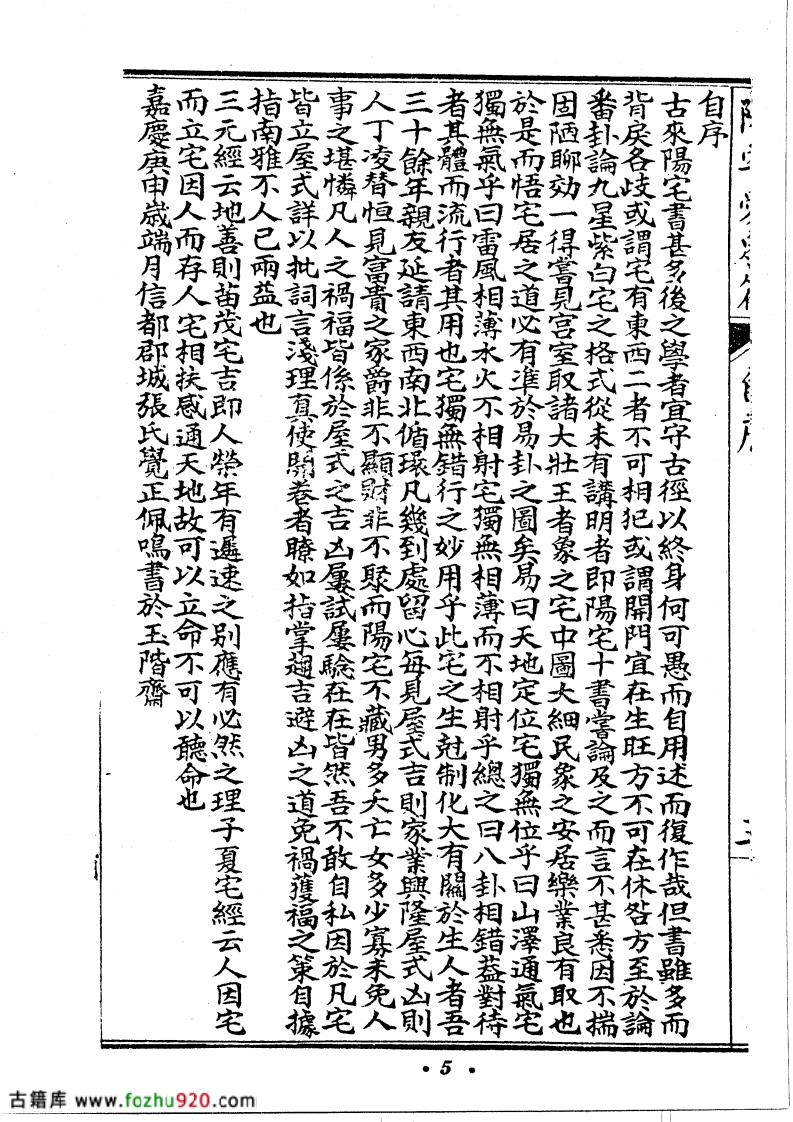 自序
古來陽宅書甚多後之學者宜守古徑以終身何可愚而自用述而復作哉但書雖多而
背戾各歧或謂宅有東西二者不可相犯或謂開門宜在生旺方不可在休咎方至於論
番卦論九星紫白宅之格式從未有講明者即陽宅十書嘗論及之而言不甚悉因不揣
固陋聊効一得嘗見宫室取諸大壯王者象之宅中圖大細民象之安居樂業良有取也
於是而悟宅居之道必有準於易卦之圖矣易曰天地定位宅獨無位乎曰山澤通氣宅
獨無氣乎曰雷風相薄水火不相射宅獨無相薄而不相射乎總之曰八卦相錯葢對待
者其體而流行者其用也宅獨無錯行之妙用乎此宅之生尅制化大有關於生人者吾
三十餘年親友延請東西南北循環凡幾到處留心每見屋式吉則家業興隆屋式凶則
人丁凌替恒見富貴之家爵非不顯財非不聚而陽宅不藏男多夭亡女多少寡未免人
事之堪憐凡人之禍福皆係於屋式之吉凶屢試屢驗在在皆然吾不敢自私因於凡宅
皆立屋式詳以批詞言淺理真使開卷者瞭如指掌趨吉避凶之道免禍獲福之策自據
指南雅不人已兩益也
三元經云地善則苗茂宅吉即人榮年有遲速之別應有必然之理子夏宅經云人因宅
而立宅因人而存人宅相扶感通天地故可以立命不可以聽命也
嘉慶庚申歲端月信都郡城張氏覺正佩鳴書於玉階齋
• 5 •
古籍库 www.fozhu920.com